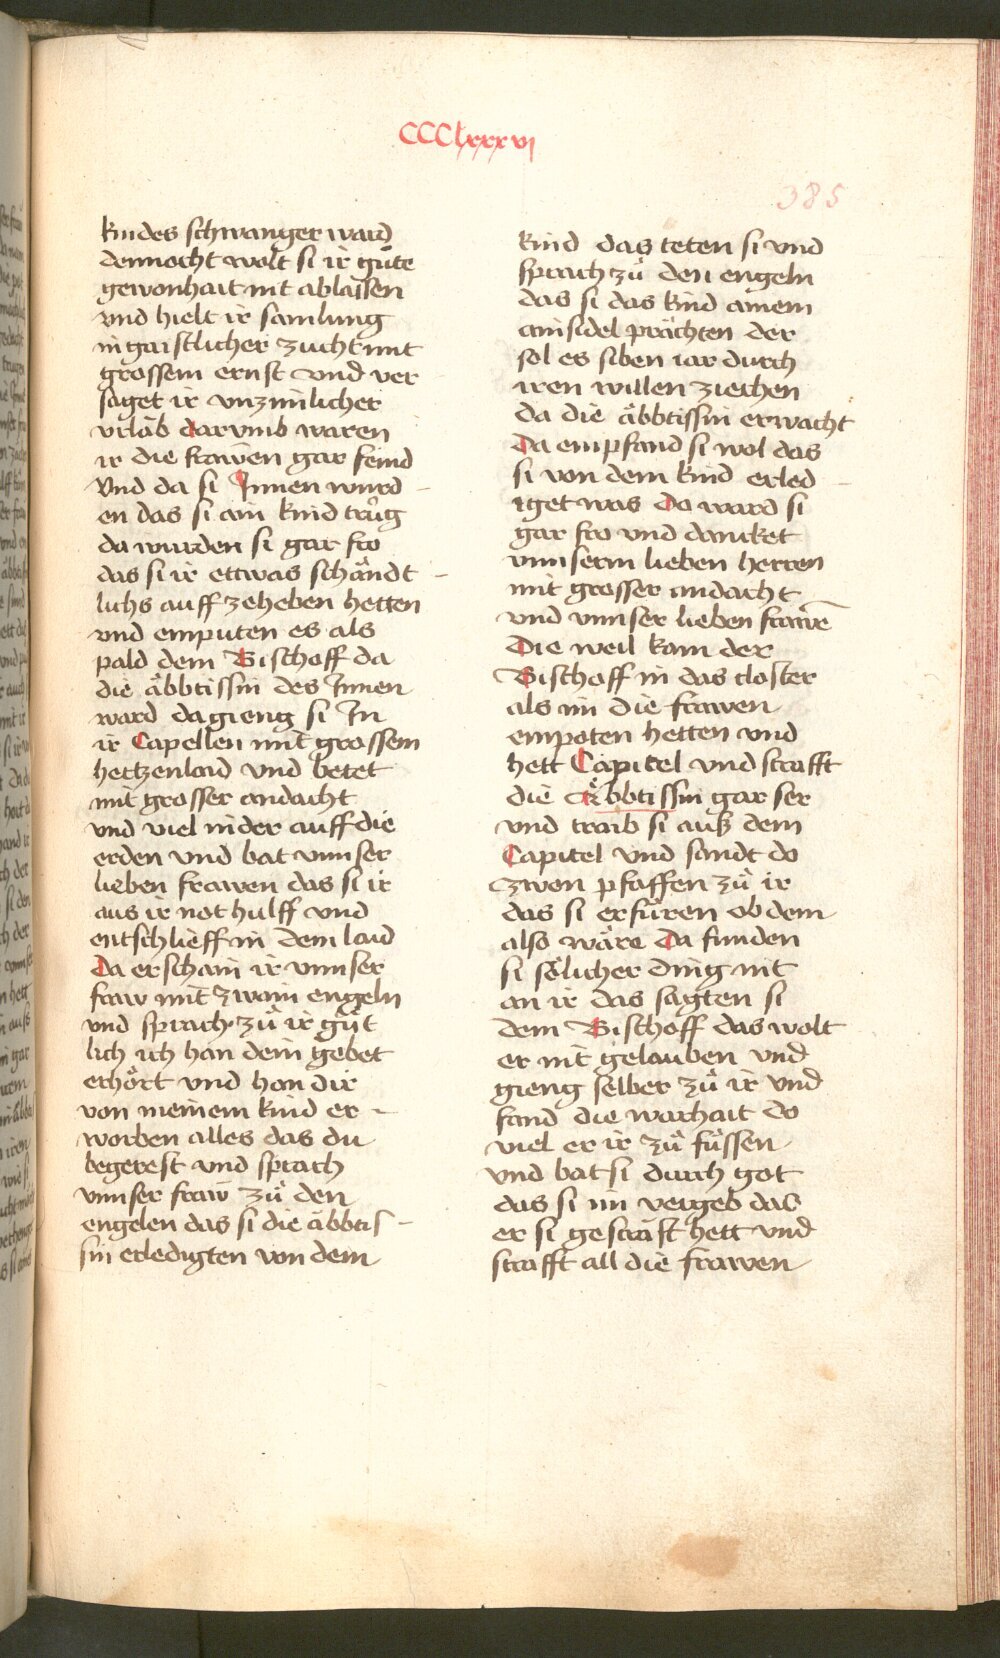 CCClxxxvi
385
kindes schwanger ward
dennocht wolt si ir gůte
gewonhait nit ablassen
vnd hielt ir samlung
in gaistlicher zucht mit
grossem ernst vnd ver
saget ir vnzimlicher
vrlab darvmb waren
ir die frawen gar feind
Vnd da si Innen wurd
en das si ain kind trůg
da wurden si gar fro
das si ir ettwas schändt
lichs auff zeheben hetten
vnd emputen es als
pald dem Bischoff da
die äbbtissin des Innen
ward da gieng si In
ir Capellen mit grossem
hertzenlaid vnd betet
mit grosser andacht
vnd viel nider auff die
erden vnd bat vnnser
lieben frawen das si ir
aus ir not hulff vnd
entschlieff in dem laid
Da erschain ir vnnser
fraw mit zwain engeln
vnd sprach zů ir gůt
lich ich han dein gebet
erhört vnd han dir
von meinem kind er
worben alles das du
begerest vnd sprach
vnnser fraw zů den
engelen das si die äbbtis
sin erledigten von dem
kind das teten si vnd
sprach zů den engeln
das si das kind ainem
ainsidel prächten der
sol es siben iar durch
iren willen ziechen
da die äbbtissin erwacht
Da empfand si wol das
si von dem kind erled
iget was Da ward si
gar fro vnd dancket
vnnserm lieben herren
mit grosser andacht
vnd vnnser lieben frawē
Die weil kam der
Bischoff in das closter
als im die frawen
empoten hetten vnd
hett Capitel vnd strafft
die Äbbtissin gar ser
vnd traib si auß dem
Capitel vnd sandt do
zwen pfaffen zů ir
das si erfůren ob dem
also wäre Da funden
si sölicher ding nit
an ir das sagten si
dem Bischoff das wolt
er nit gelauben vnd
gieng selber zů ir vnd
fand die warhait do
viel er ir zů fůssen
vnd bat si durch got
das si im vergeb das
er si gestraft hett vnd
strafft all die frawen